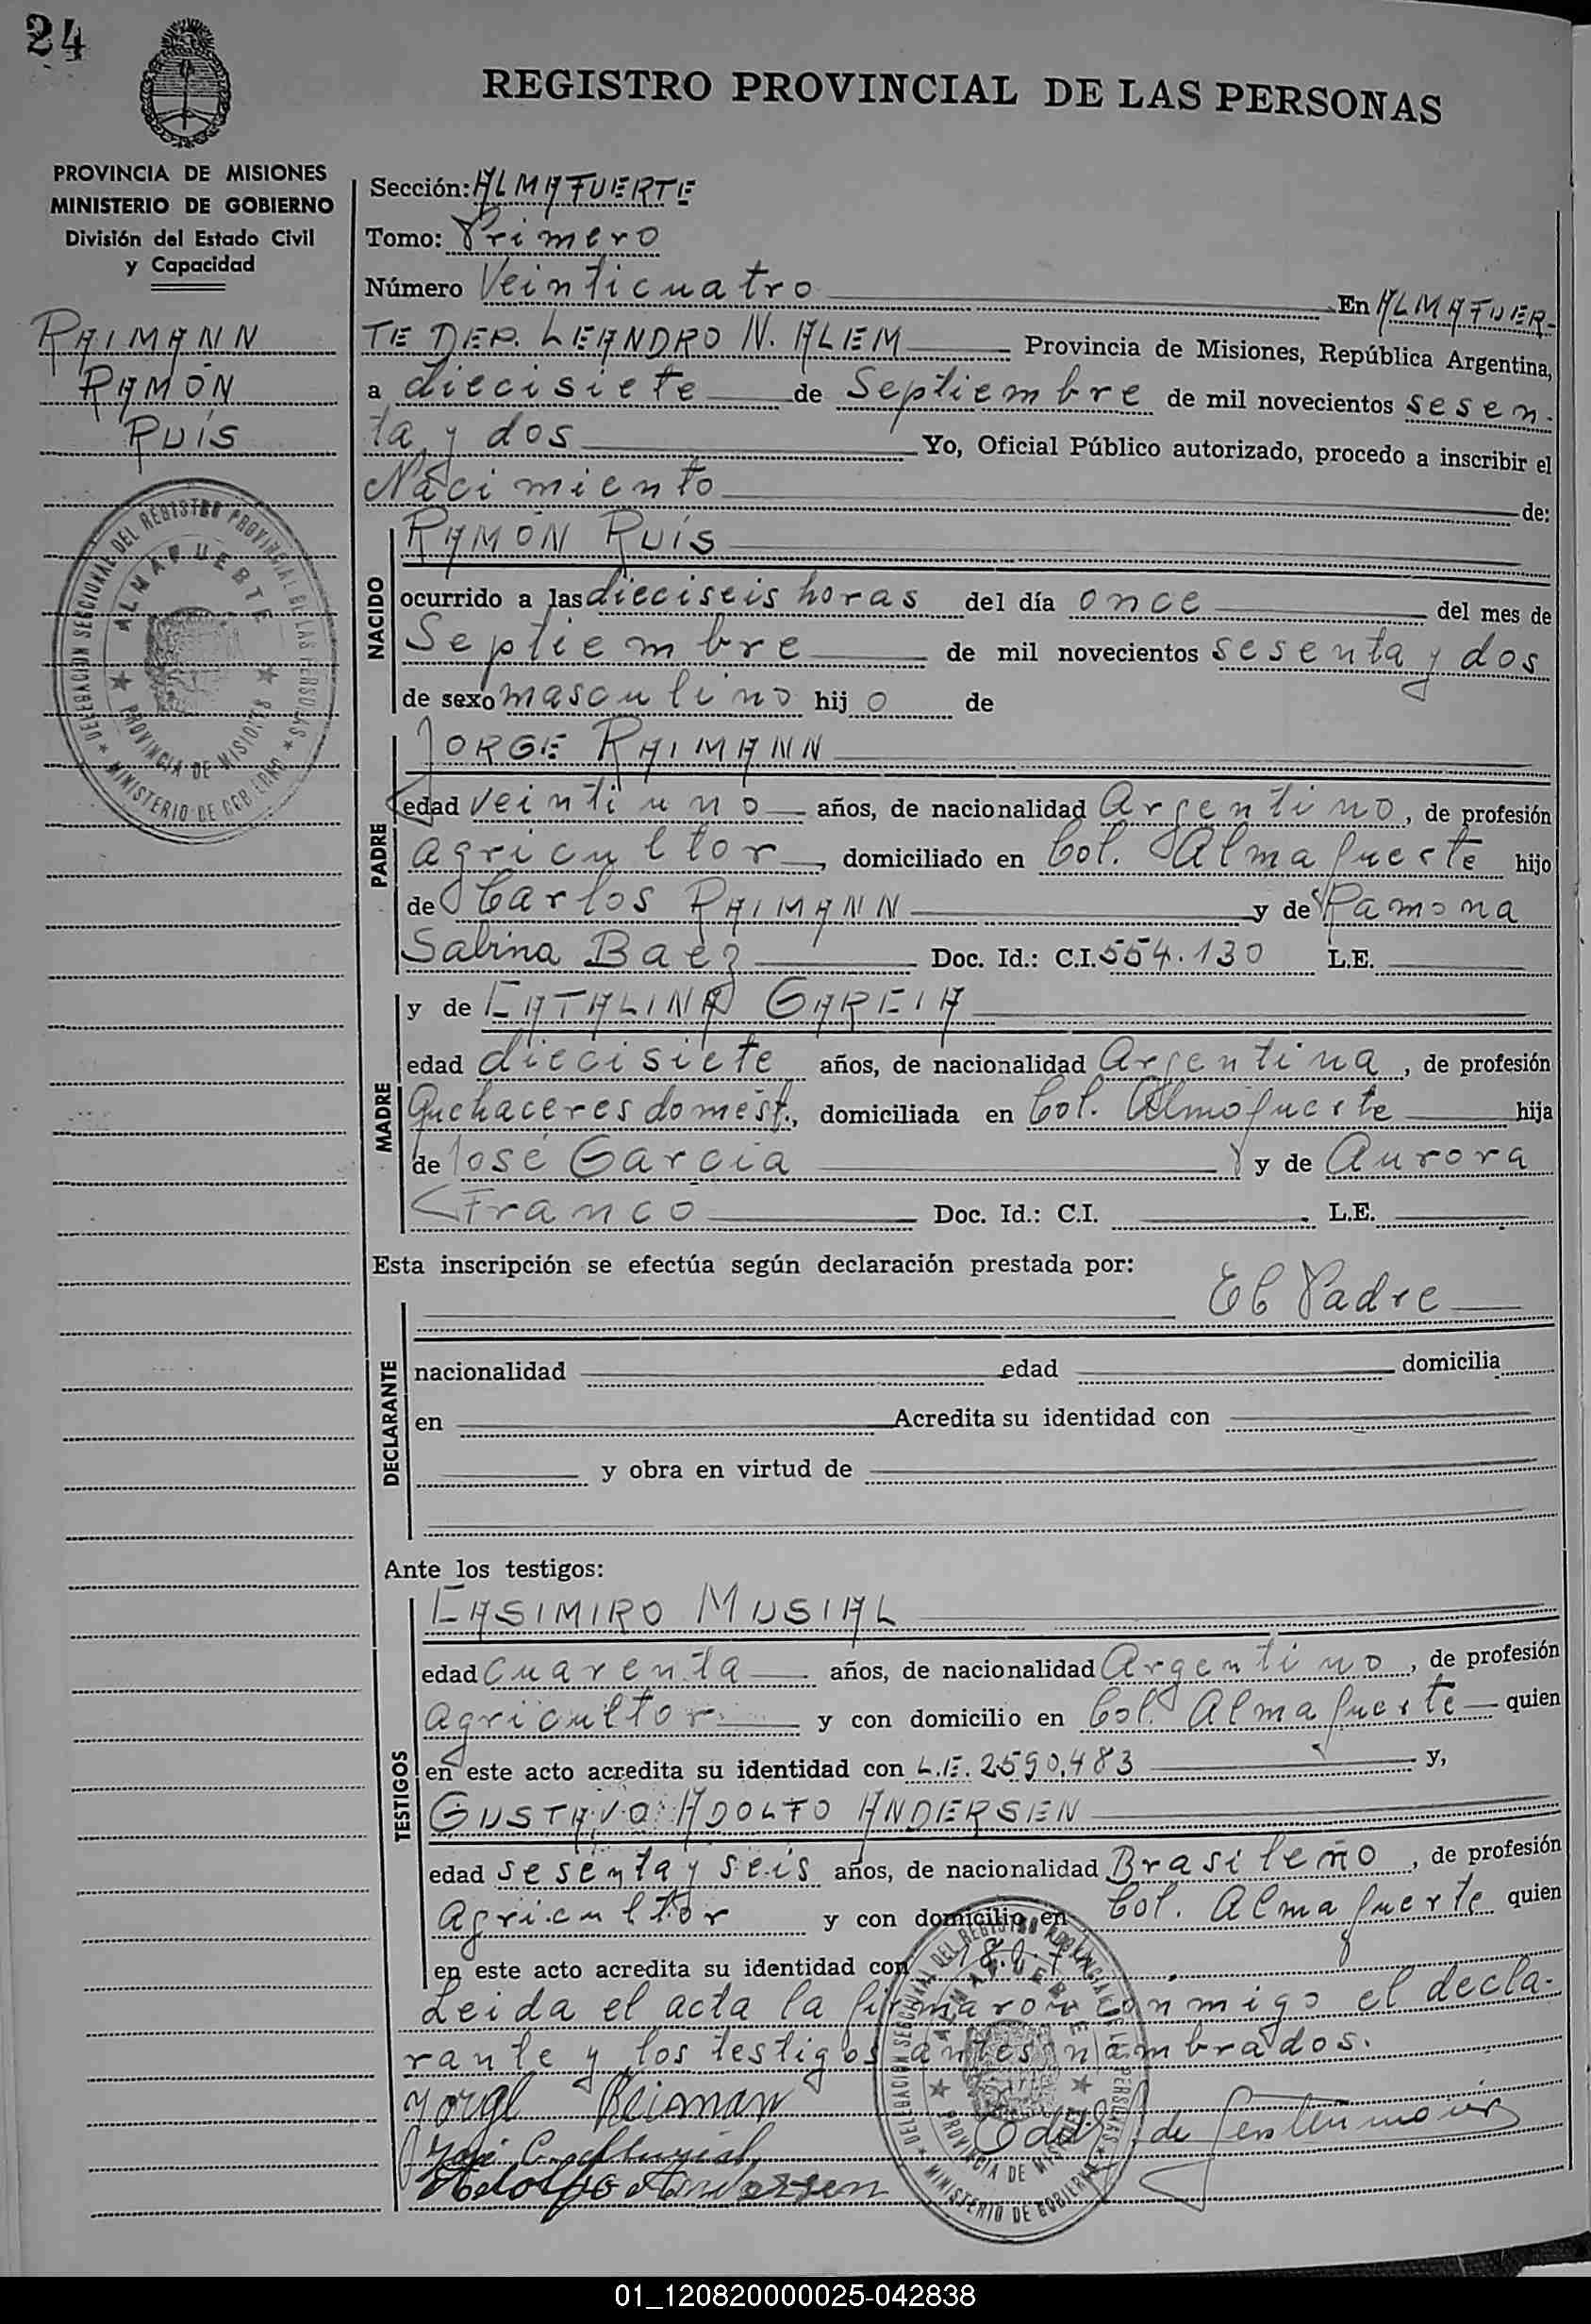 24
REGISTRO PROVINCIAL DE LAS PERSONAS
PROVINCIA DE MISIONES
MINISTERIO DE GOBIERNO
División del Estado Civil
y Capacidad
RAIMANN
RAMÓN
RUÍS
DELEGACION SECCIONAL DEL REGISTRO PROVINCIAL DE LAS PERSONAS
ALMAFUERTE
PROVINCIA DE MISIONES
MINISTERIO DE GOBIERNO
Sección: ALMAFUERTE
Tomo: Primero
Número Veinticuatro En ALMAFUER-
TE DEP. LEANDRO N. ALEM Provincia de Misiones, República Argentina,
a diecisiete de Septiembre de mil novecientos sesen-
ta y dos Yo, Oficial Público autorizado, procedo a inscribir el
Nacimiento de:
NACIDO
RAMÓN RUÍS
ocurrido a las dieciseis horas del día once del mes de
Septiembre de mil novecientos sesenta y dos
de sexo masculino hijo de
PADRE
JORGE RAIMANN
edad veintiuno años, de nacionalidad Argentino, de profesión
agricultor, domiciliado en Col. Almafuerte hijo
de Carlos RAIMANN y de Ramona
Sabina Baez Doc. Id.: C.I. 554.130 L.E.
MADRE
y de CATALINA GARCIA
edad diecisiete años, de nacionalidad Argentina, de profesión
Quehaceres domést., domiciliada en Col. Almafuerte hija
de José Garcia y de Aurora
Franco Doc. Id.: C.I. L.E.
Esta inscripción se efectúa según declaración prestada por:
El Padre
DECLARANTE
nacionalidad edad domicilia
en Acredita su identidad con
y obra en virtud de
Ante los testigos:
TESTIGOS
CASIMIRO MUSIAL
edad cuarenta años, de nacionalidad Argentino, de profesión
agricultor y con domicilio en Col. Almafuerte quien
en este acto acredita su identidad con L.E. 2590.483 y,
GUSTAVO ADOLFO ANDERSEN
edad sesenta y seis años, de nacionalidad Brasileño, de profesión
agricultor y con domicilio en Col. Almafuerte quien
en este acto acredita su identidad con
Leida el acta la firmaron conmigo el decla-
rante y los testigos antes nombrados.
Jorge Reiman
Adolfo Andersen
DELEGACION SECCIONAL DEL REGISTRO PROVINCIAL DE LAS PERSONAS
ALMAFUERTE
PROVINCIA DE MISIONES
MINISTERIO DE GOBIERNO
01_120820000025-042838